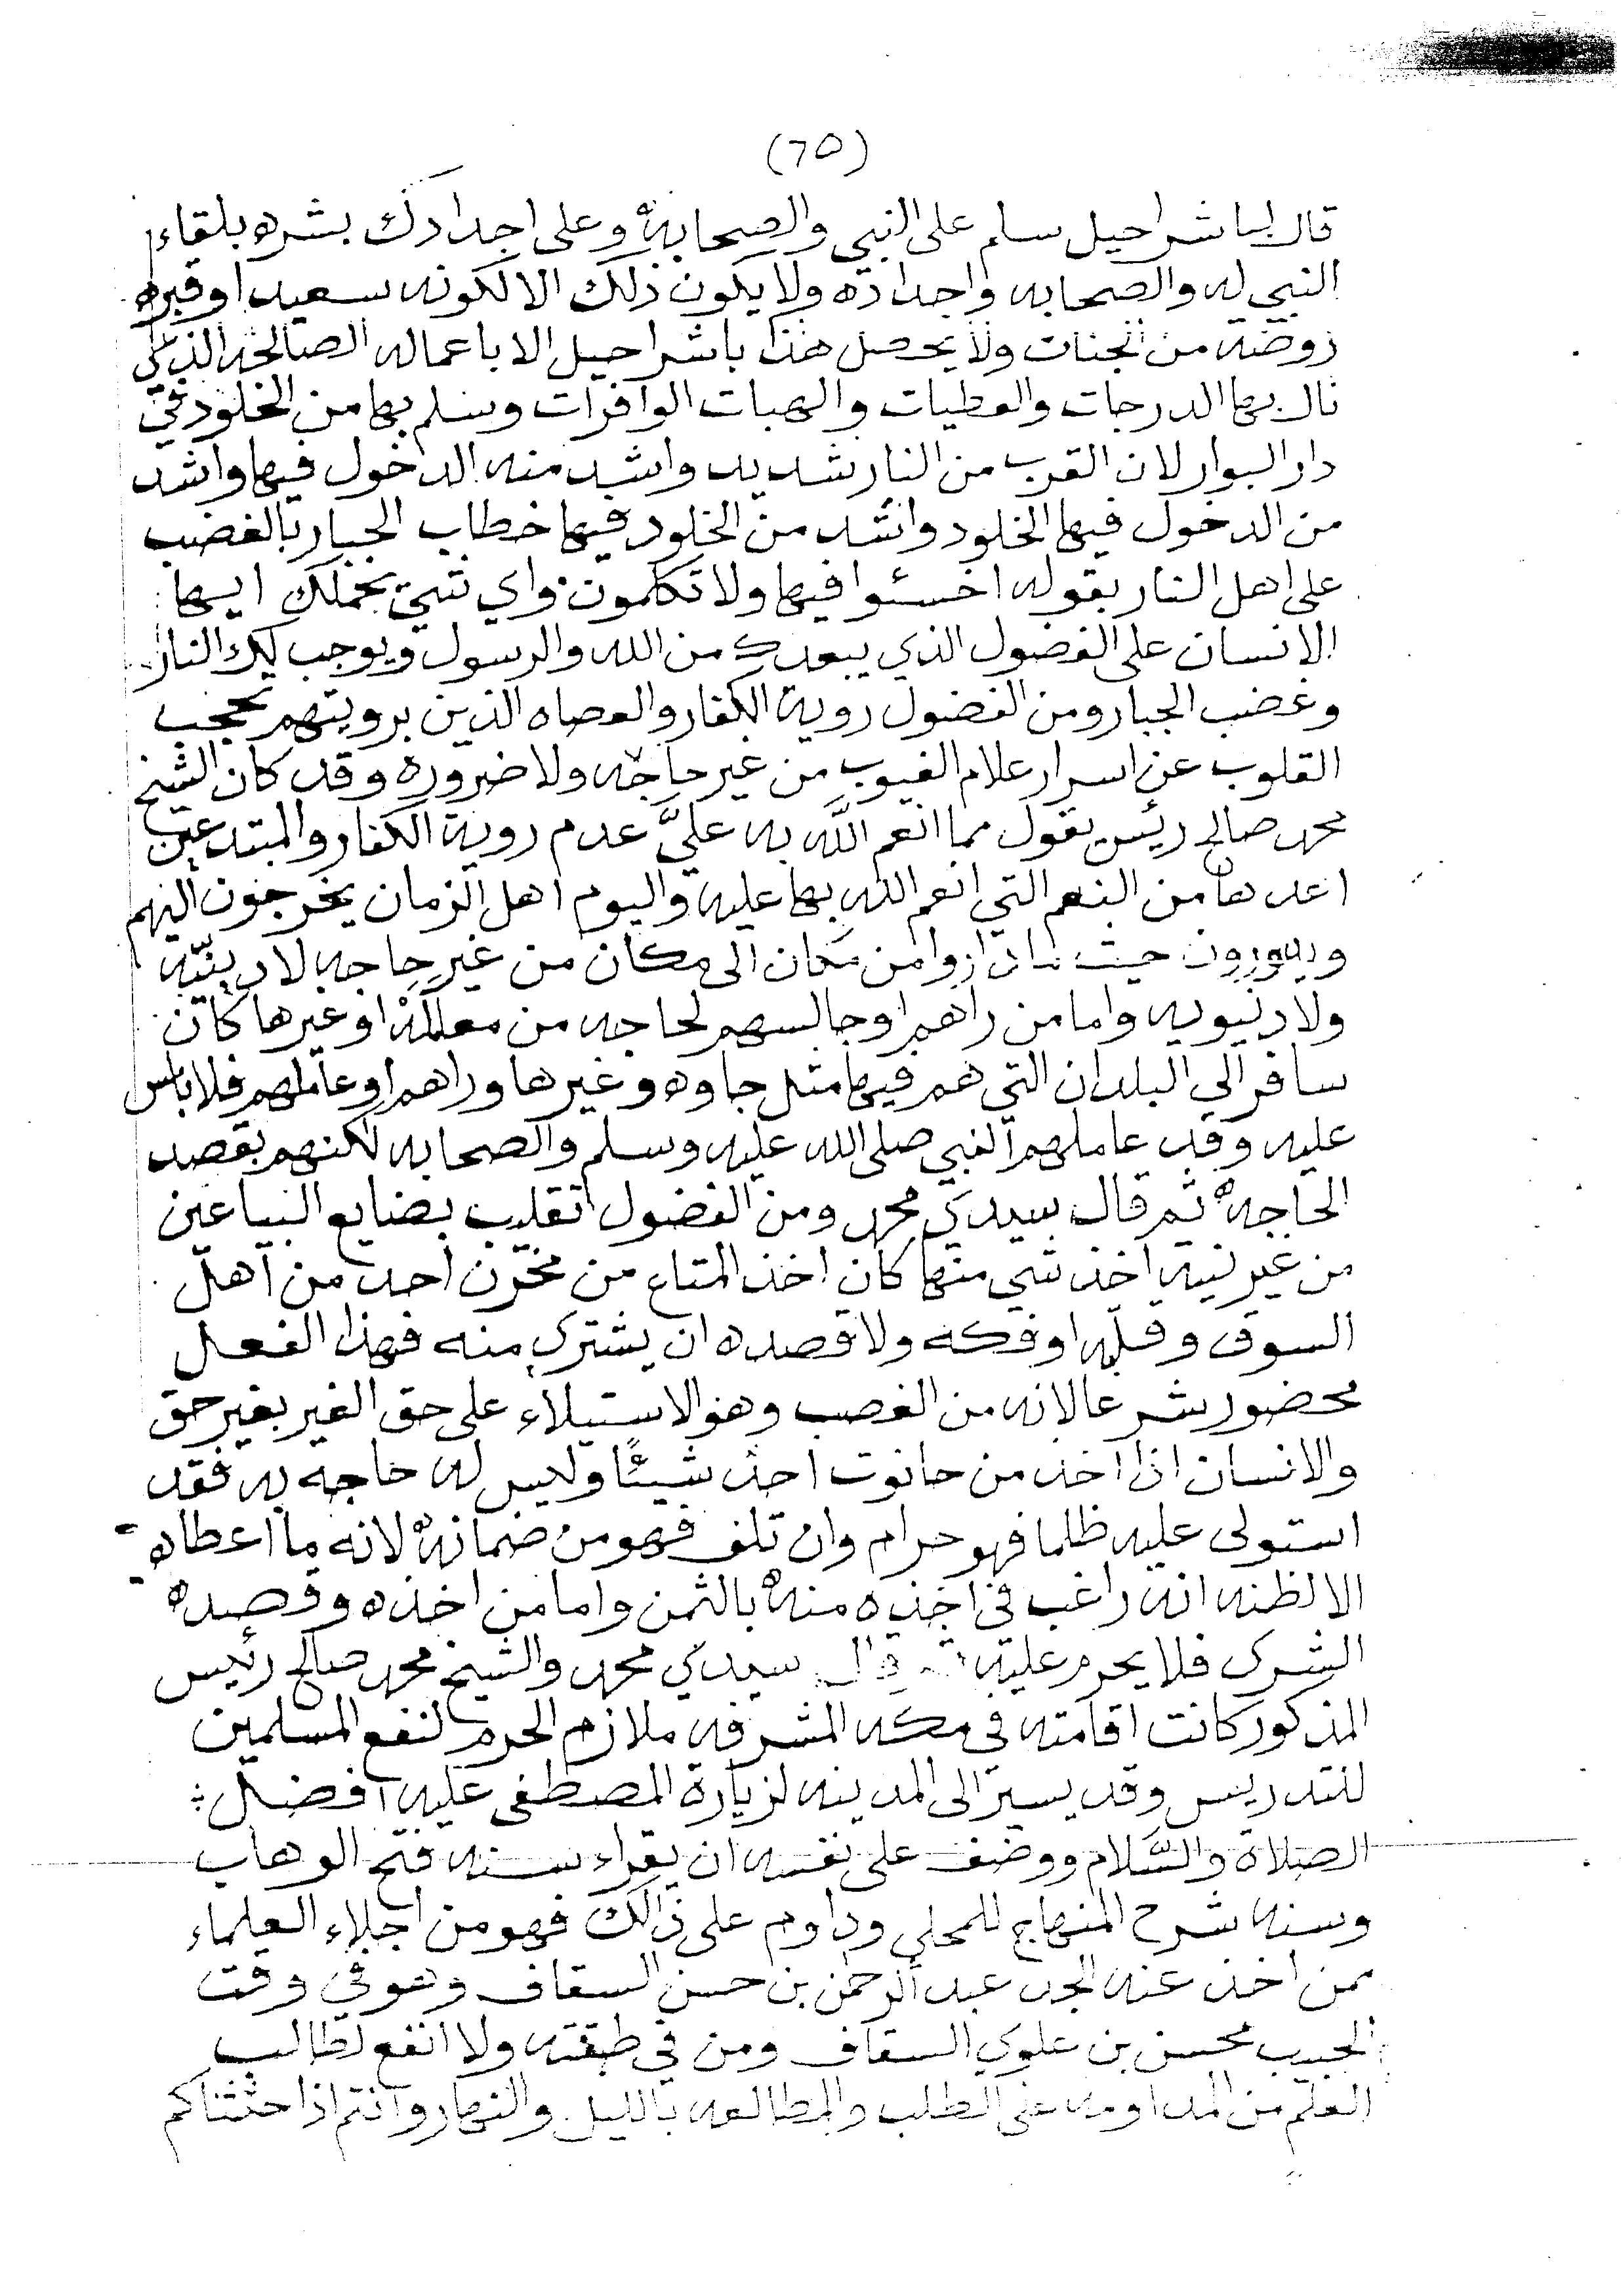 (٦٥)
قال لباشراحيل سلم على النبي والصحابه وعلى اجدادك بشره بلقاء
النبي له والصحابه واجداده ولا يكون ذلك الا لكونه سعيدا وقبره
روضه من الجنات ولا يحصل هذا باشراحيل الا باعماله الصالحه الذي
نال بها الدرجات والعطيات والهبات الوافرات وسلم بها من الخلود في
دار البوار لان القرب من النار شديد واشد منه الدخول فيها واشد
من الدخول فيها الخلود واشد من الخلود فيها خطاب الجبار بالغضب
على اهل النار بقوله اخسئوا فيها ولا تكلمون واي شيء يحملك ايها
الانسان على الفضول الذي يبعدك من الله والرسول ويوجب لك النار
وغضب الجبار ومن الفضول روية الكفار والعصاه الذين برويتهم تحجب
القلوب عن اسرار علام الغيوب من غير حاجه ولا ضروره وقد كان الشيخ
محمد صالح رئيس يقول مما انعم الله به عليَّ عدم روية الكفار والمبتدعين
اعدها من النعم التي انعم الله بها عليه واليوم اهل الزمان يخرجون اليهم
ويدورون حيث ما داروا من مكان الى مكان من غير حاجه لا دينيّه
ولا دنيويه واما من راهم او جالسهم لحاجه من معامله او غيرها كان
سافر الى البلدان التي هم فيها مثل جاوه وغيرها وراهم او عاملهم فلا باس
عليه وقد عاملهم النبي صلى الله عليه وسلم والصحابه لكنهم بقصد
الحاجه ثم قال سيدي محمد ومن الفضول تقليب بضايع البياعين
من غير نية اخذ شي منها كان اخذ المتاع من مخزن احد من اهل
السوق وقلّبه او فكه ولا قصده ان يشتري منه فهذا الفعل
محضور شرعا لانه من الغصب وهو الاستيلاء على حق الغير بغير حق
والانسان اذا اخذ من حانوت احد شيئًا وليس له حاجه به فقد
استولى عليه ظلما فهو حرام وان تلف فهو من ضمانه لانه ما اعطاه
الا لظنه انه راغب في اخذه منه بالثمن واما من اخذه وقصده
الشرى فلا يحرم عليه ثم قال سيدي محمد والشيخ محمد صالح رئيس
المذكور كانت اقامته في مكه المشرفه ملازم الحرم لنفع المسلمين
للتدريس وقد يسير الى المدينه لزيارة المصطفى عليه افضل
الصلاة والسَّلام ووضف على نفسه ان يقراء سنه فتح الوهاب
وسنه شرح المنهاج للمحلي وداوم على ذالك فهو من اجلاء العلماء
ممن اخذ عنه الجد عبد الرحمن بن حسن السقاف وهو في وقت
الحبيب محسن بن علوي السقاف ومن في طبقته ولا انفع لطالب
العلم من المداومه على الطلب والمطالعه بالليل والنهار وانتم اذا حثثناكم